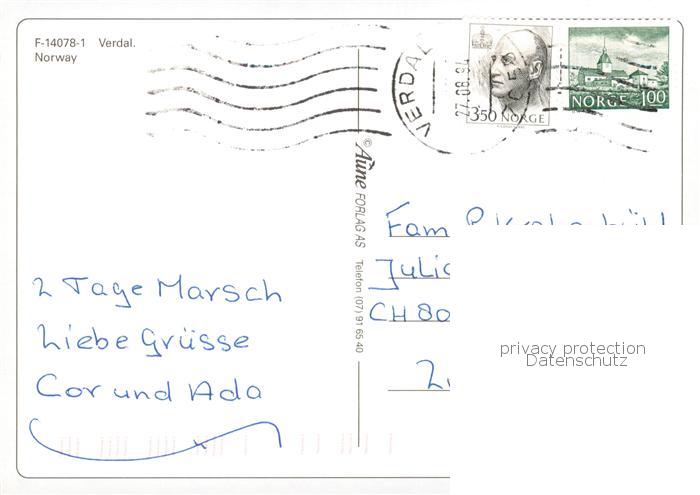 F-14078-1 Verdal.
Norway
VERDAL
27.06.94
3.50 NORGE
NORGE 1.00
© Aune FORLAG AS Telefon (07) 91 65 40
2 Tage Marsch
Liebe Grüsse
Cor und Ada
Fam
CH 80
privacy protection
Datenschutz